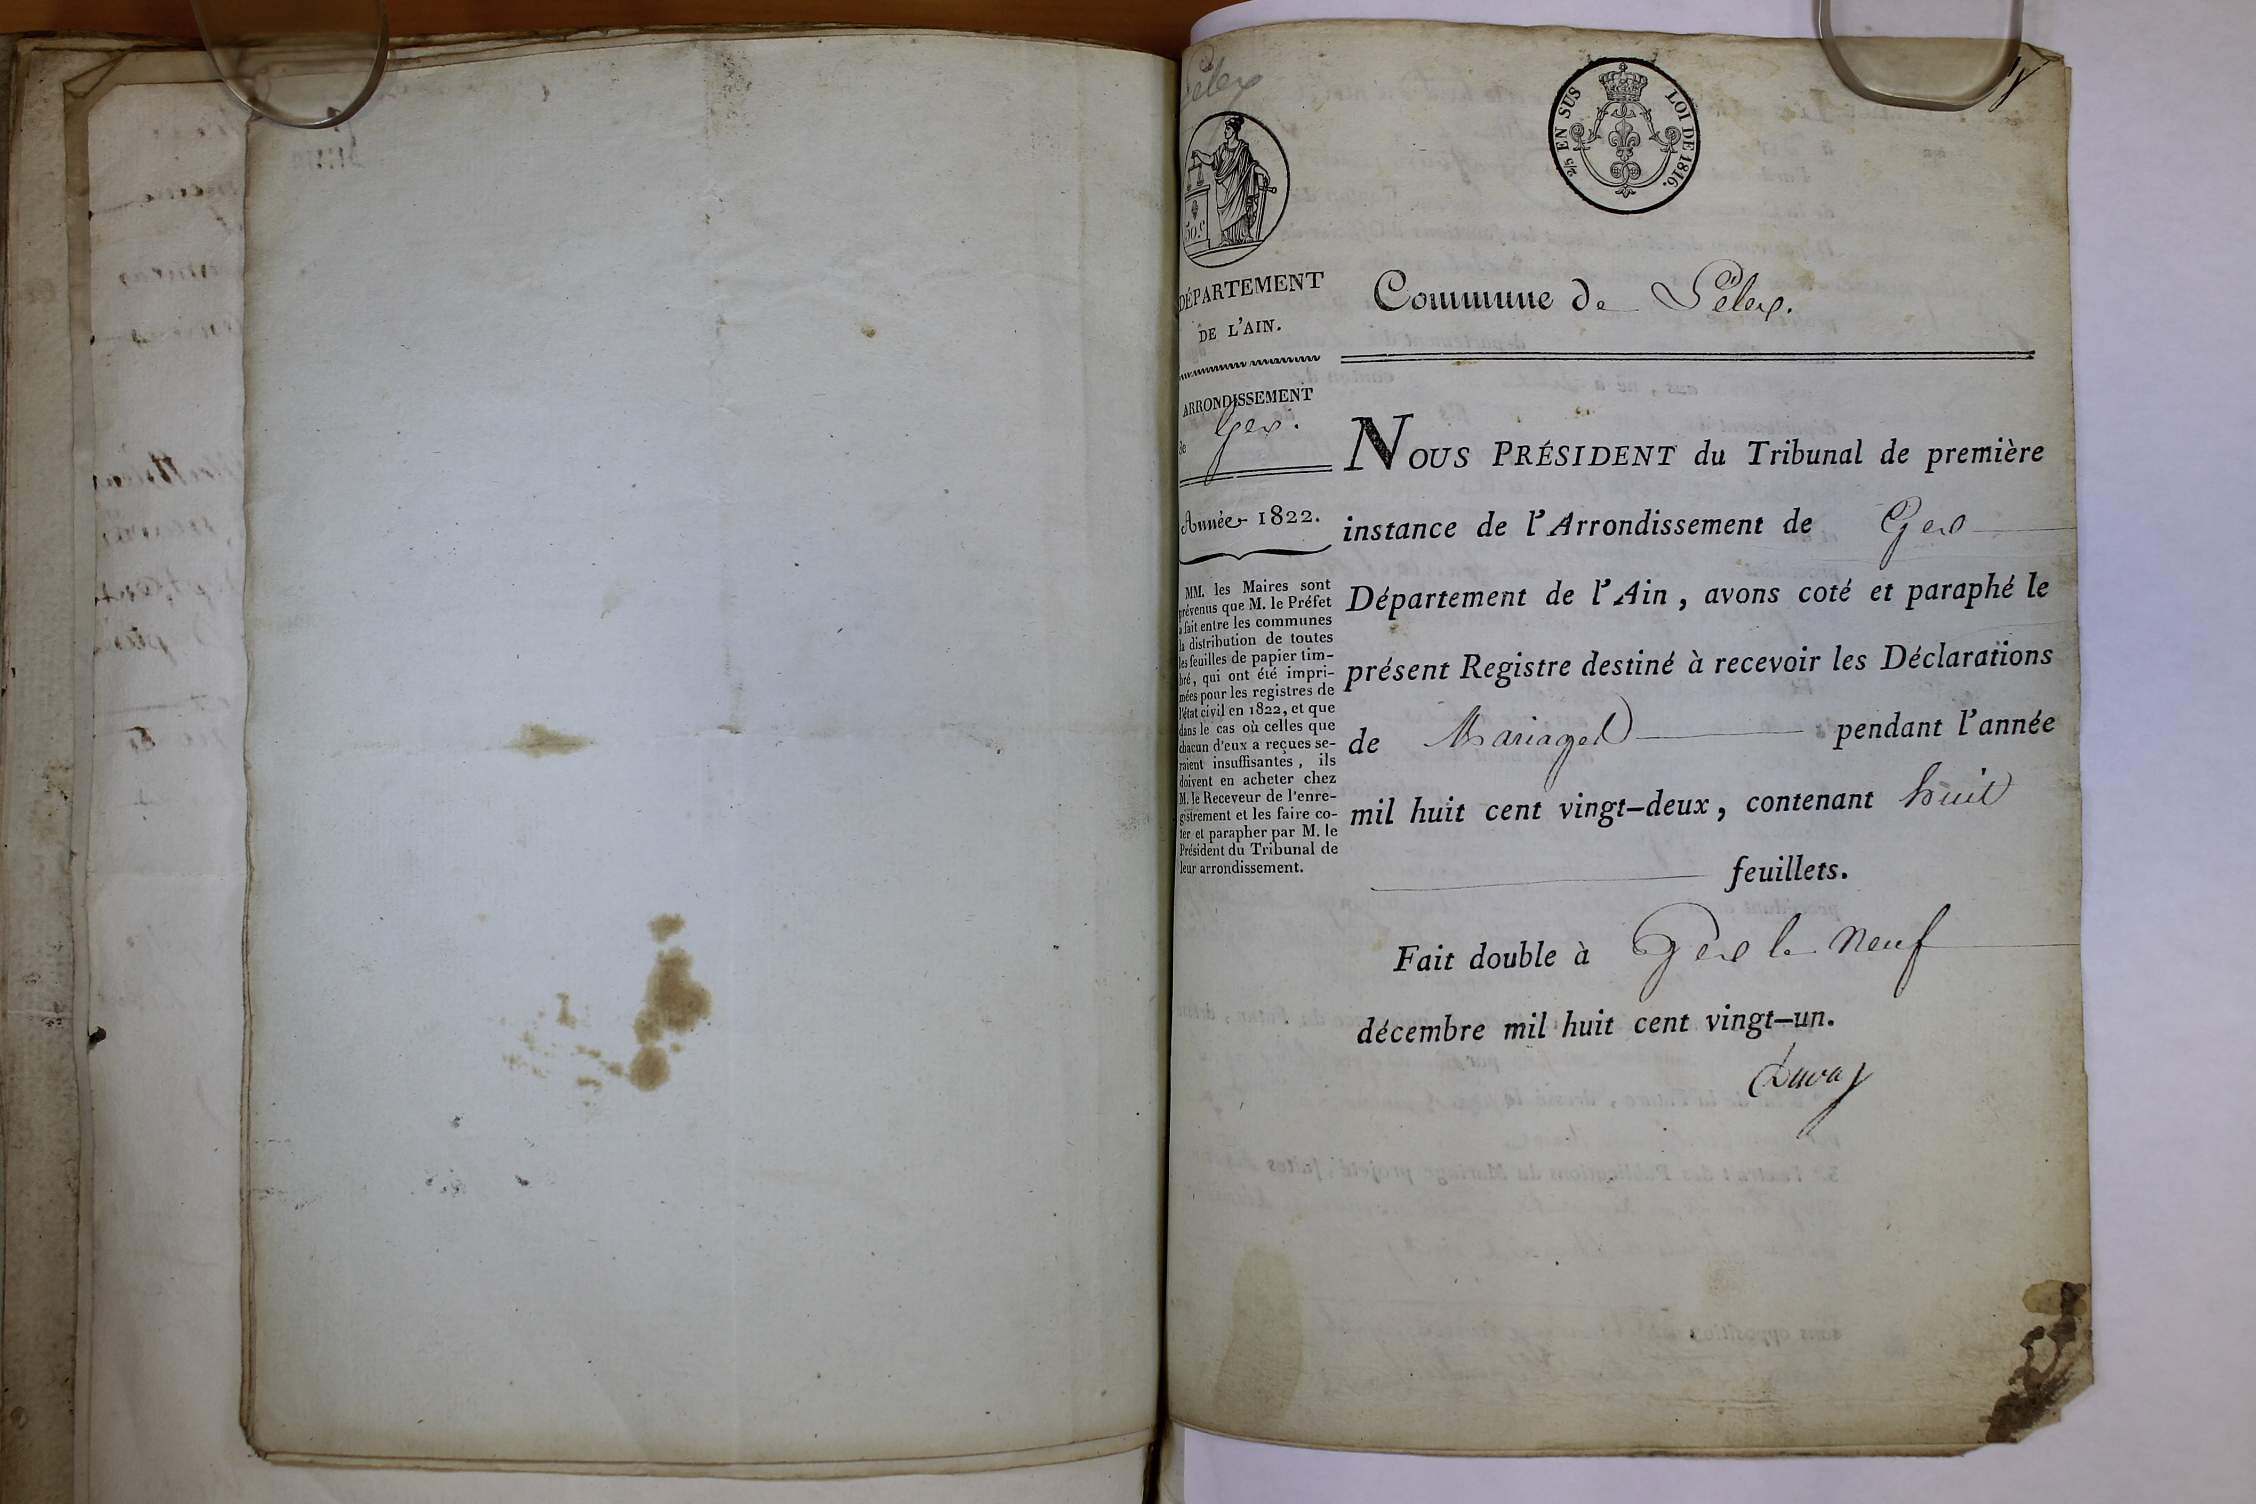 Lélex
2/5 EN SUS LOI DE 1816.
50 c.
DÉPARTEMENT
DE L'AIN.
ARRONDISSEMENT
de Gex.
Année 1822.
MM. les Maires sont
prévenus que M. le Préfet
a fait entre les communes
la distribution de toutes
les feuilles de papier tim-
bré, qui ont été impri-
mées pour les registres de
l'état civil en 1822, et que
dans le cas où celles que
chacun d'eux a reçues se-
raient insuffisantes, ils
doivent en acheter chez
M. le Receveur de l'enre-
gistrement et les faire co-
ter et parapher par M. le
Président du Tribunal de
leur arrondissement.
Commune de Lélex.
NOUS PRÉSIDENT du Tribunal de première
instance de l'Arrondissement de Gex
Département de l'Ain, avons coté et paraphé le
présent Registre destiné à recevoir les Déclarations
de Mariages pendant l'année
mil huit cent vingt-deux, contenant huit
feuillets.
Fait double à Gex le neuf
décembre mil huit cent vingt-un.